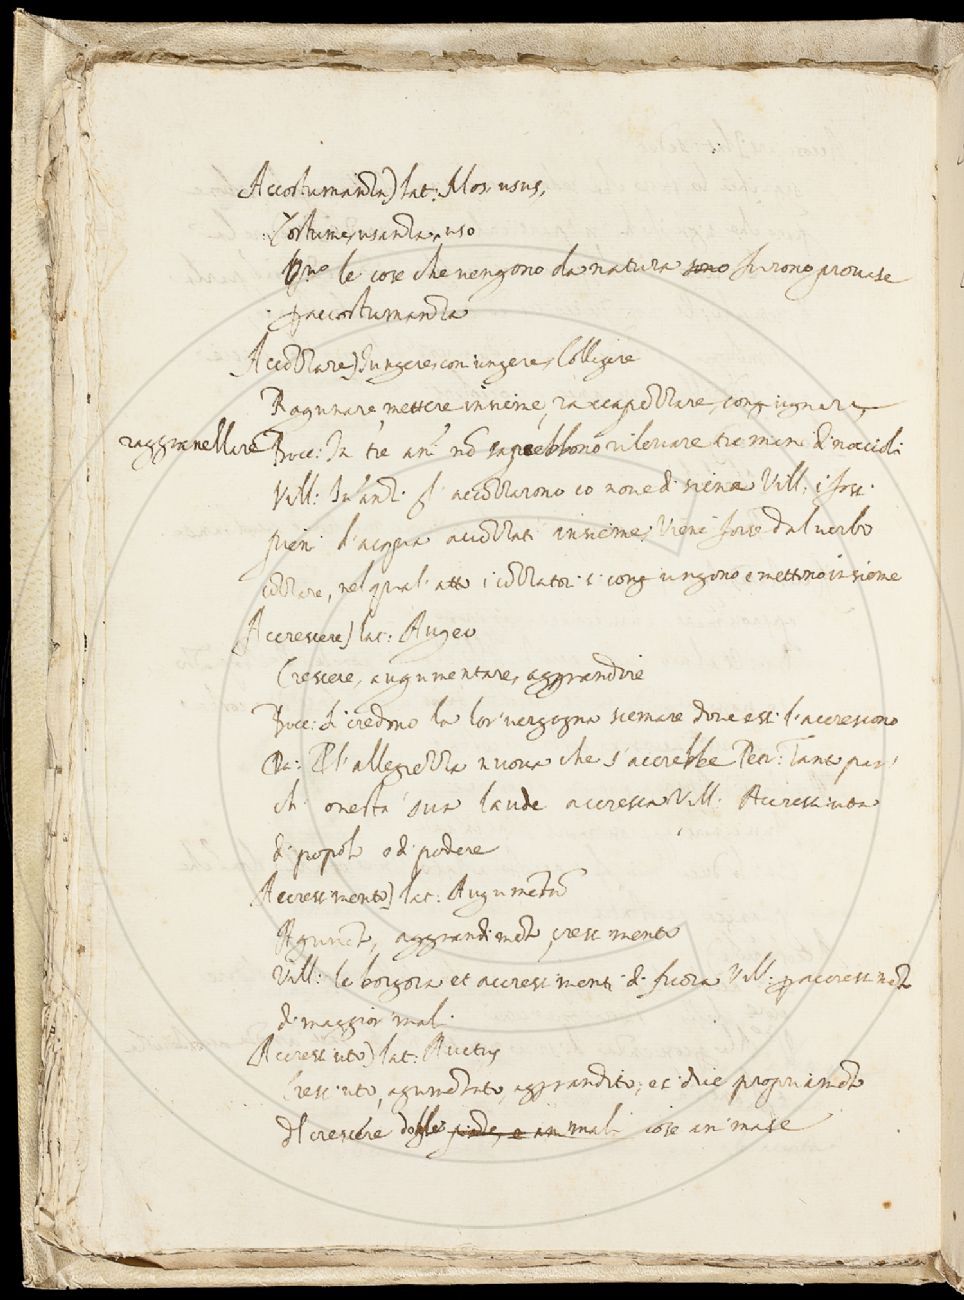 Accostumanza) lat: Mos usus,
Costume, usanza, uso
le cose che uengono da natura sono furono prouase
p accostumanza
Accozzare) Jungere, coniungere, Colligere
Ragunare, mettere insieme, raccapezzare, congiugnare,
raggranellare Bocc: In tre an no saprebbono rileuare tre man di noccioli
Vill: In anzi si accozzarono co none di sicine Vill: i fossi
pieni d'acqua accozzati insieme, Viene forse dal uerbo
cozzare, nel qual' atto i cozzatori si congiungono e mettono insieme
Accrescere) lat: Augeo
Crescere, augumentare, aggrandire
Bocc: Si credono la lor' uergogna scemare doue essi l'accrescono
Da: P l'allegrezza nuoua che s'accrebbe Petr: Tanto par'
ch' onesta sua laude accresca Vill: Accresciuta
di popolo o di podere
Accrescimento) lat: Augumentu
Agiunta, aggrandimeto, crescimento
Vill: le borgora et accrescimenti di fuora Vill: p accrescimeto
di maggior' mali
Accresciuto) lat: Auctus
Cresciuto, agumentato, aggrandito, et dice propriamete
Del crescere delle piante, e animali cose animate